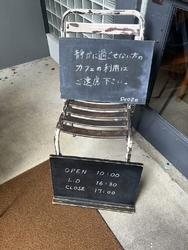 静かに過ごせない方の
カフェの利用は
ご遠慮下さい。
Doozo
OPEN 10:00
L.O 16:30
CLOSE 17:00